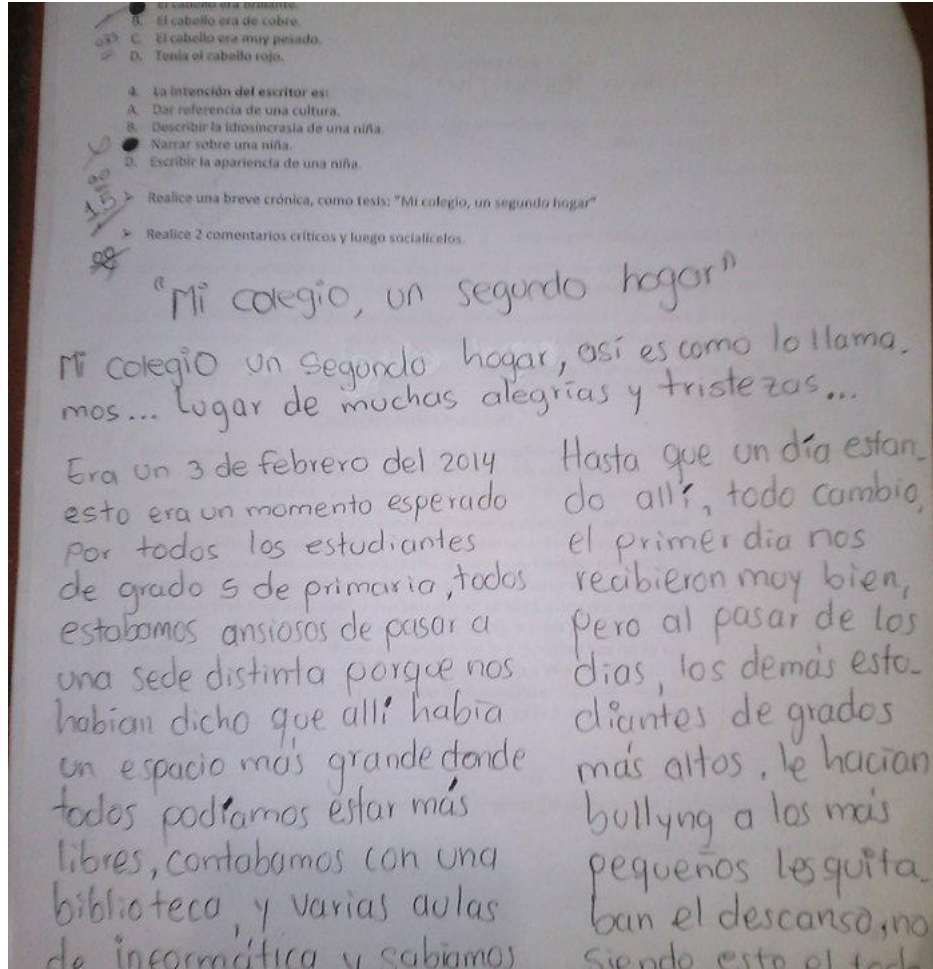 El cabello era brillante.
B. El cabello era de cobre.
C. El cabello era muy pesado.
D. Tenía el cabello rojo.
4. La intención del escritor es:
A. Dar referencia de una cultura.
B. Describir la idiosincrasia de una niña.
Narrar sobre una niña.
D. Escribir la apariencia de una niña.
1.5
➢ Realice una breve crónica, como tesis: "Mi colegio, un segundo hogar"
➢ Realice 2 comentarios críticos y luego socialícelos.
"Mi colegio, un segundo hogar"
Mi colegio un segundo hogar, así es como lo llama-
mos... Lugar de muchas alegrías y tristezas...
Era un 3 de febrero del 2014
esto era un momento esperado
por todos los estudiantes
de grado 5 de primaria, todos
estabamos ansiosos de pasar a
una sede distinta porque nos
habian dicho que allí había
un espacio más grande donde
todos podíamos estar más
libres, contabamos con una
biblioteca, y varias aulas
de informática y sabiamos
Hasta que un día estan-
do allí, todo cambio,
el primer dia nos
recibieron muy bien,
pero al pasar de los
dias, los demás estu-
diantes de grados
más altos, le hacian
bullyng a los más
pequeños les quita-
ban el descanso, no
siendo esto el